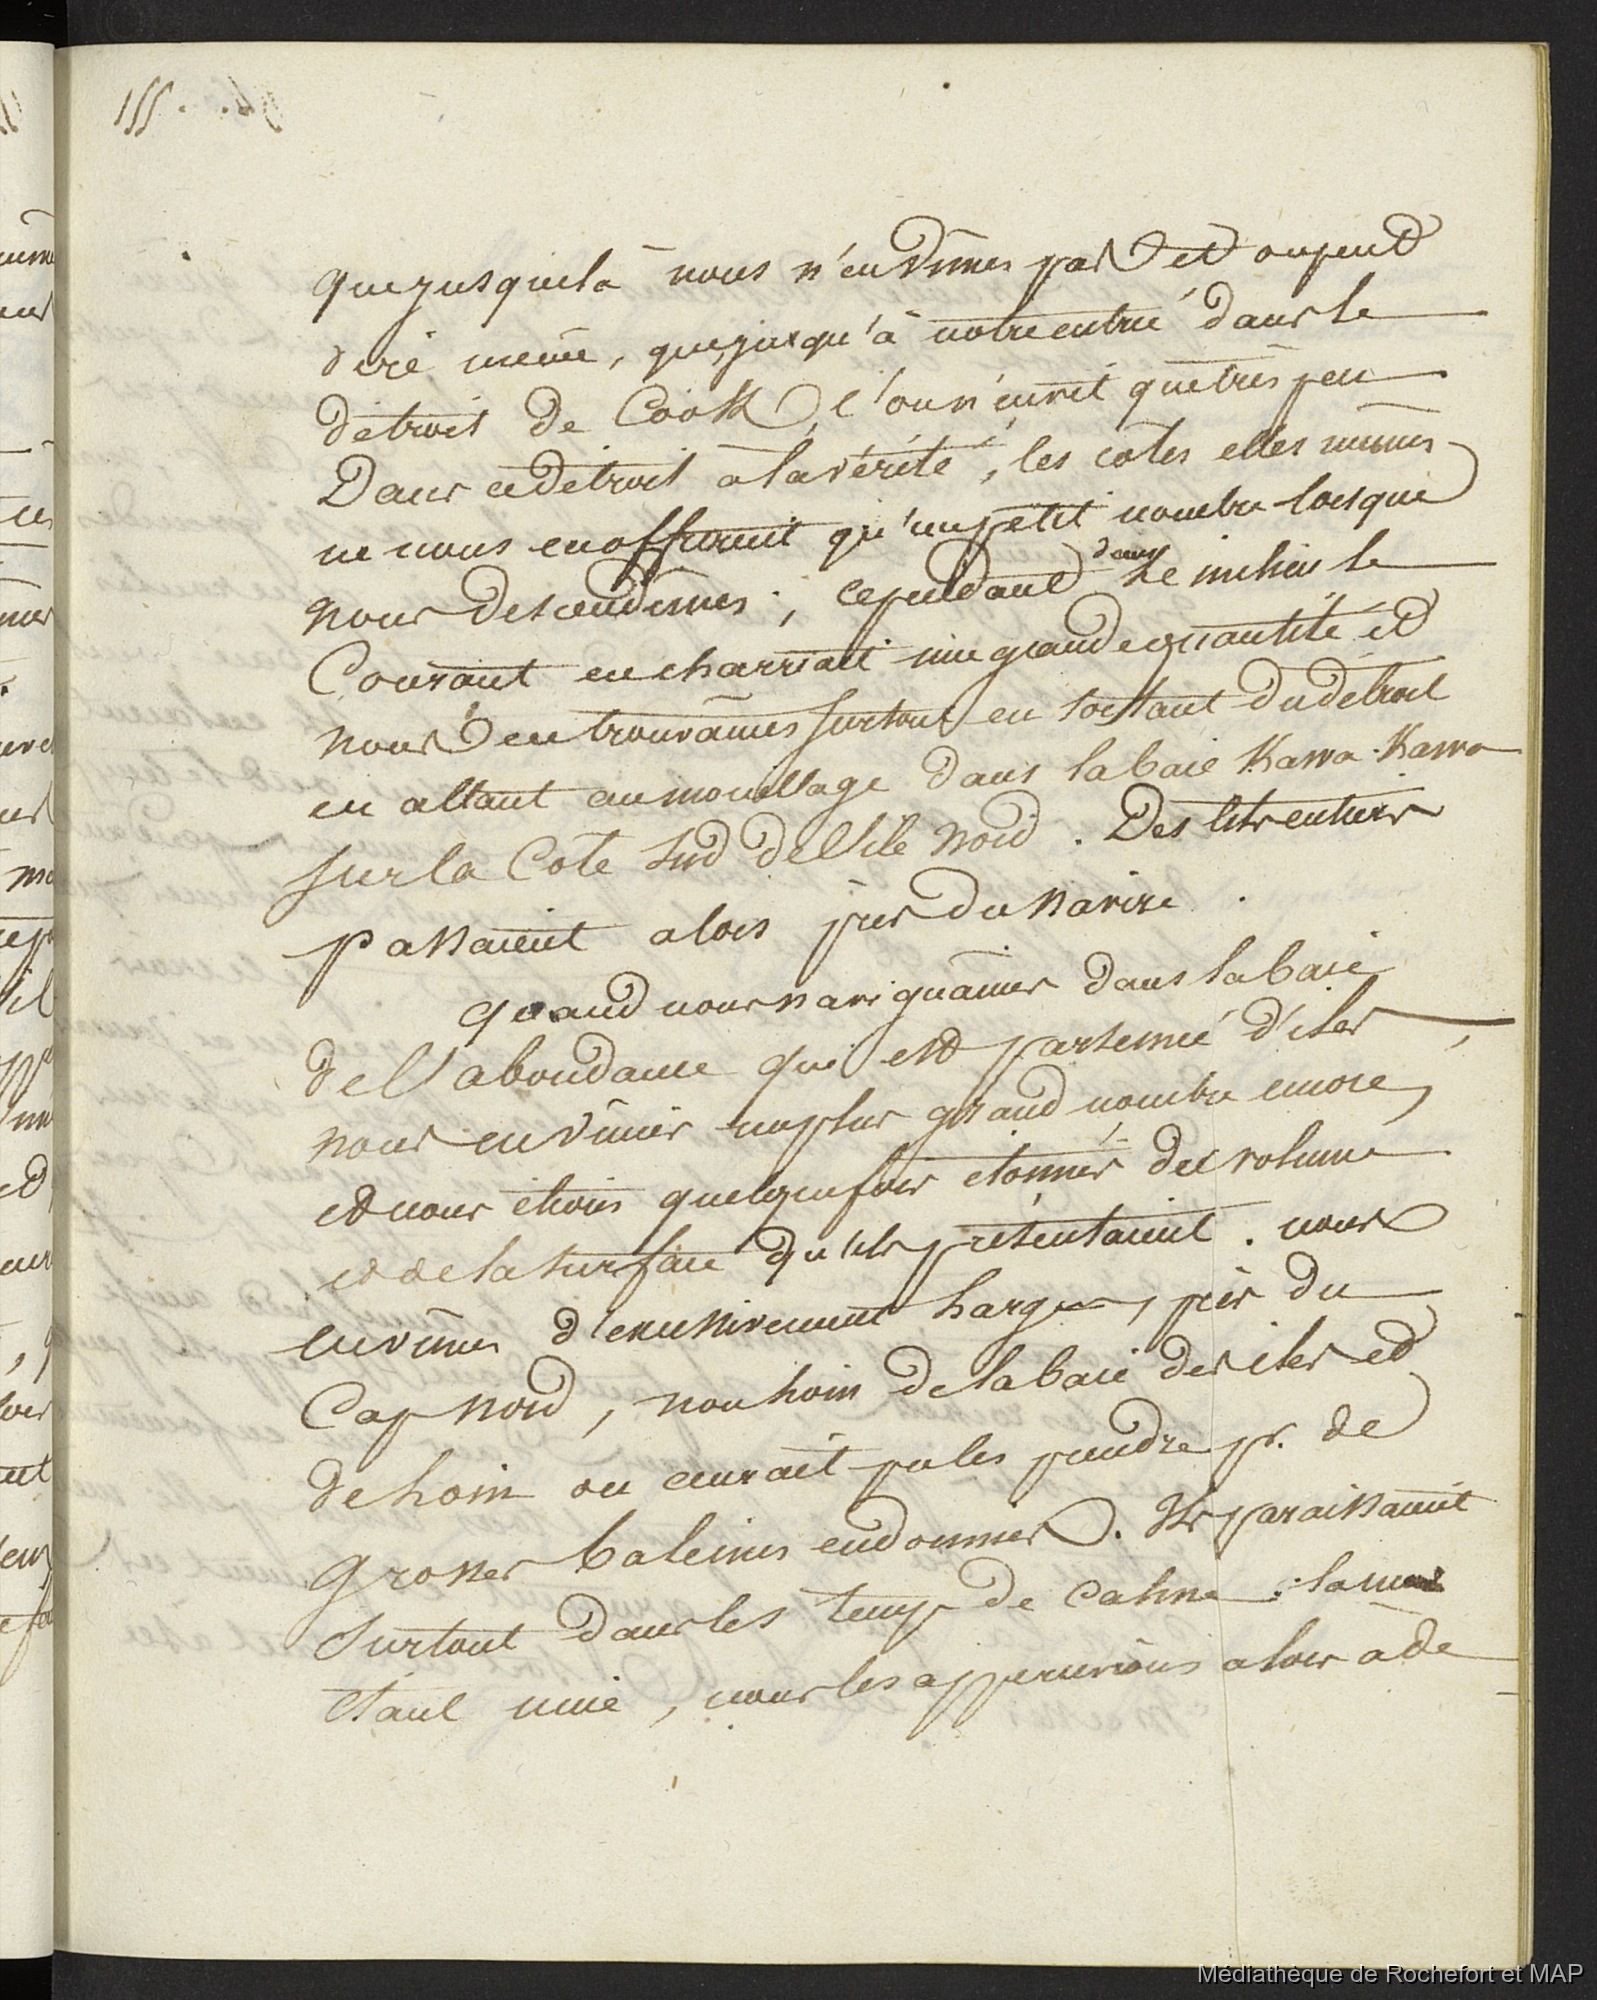 155.
que jusques là nous n'en vîmes pas et on peut
dire même, que jusqu'à notre entrée dans le
détroit de Cook, l'on n'en vit que très peu
Dans ce détroit à la vérité, les côtes elles mêmes
ne nous en offrirent qu'un petit nombre lorsque
nous descendimes ; cependant dans le milieu le
Courant en charriait une grande quantité et
nous en trouvâmes surtout en sortant du détroit
en allant au mouillage dans la baie Kawa-Kawa
sur la Côte Sud de l'île Nord. Des lits entiers
passaient alors près du navire.
Quand nous naviguâmes dans la baie
de l'abondance qui est parsemée d'iles,
nous en vîmes un plus grand nombre encore,
et nous étions quelquefois étonnés du volume
et de la surface qu'ils présentaient. nous
en vîmes d'excessivement larges, près du
Cap Nord, non loin de la baie des iles et
de loin on aurait pu les prendre pr. de
grosses baleines endormies. Ils paraissaient
surtout dans les temps de calme : la mer
étant unie, nous les appercevions alors à de
Médiathèque de Rochefort et MAP